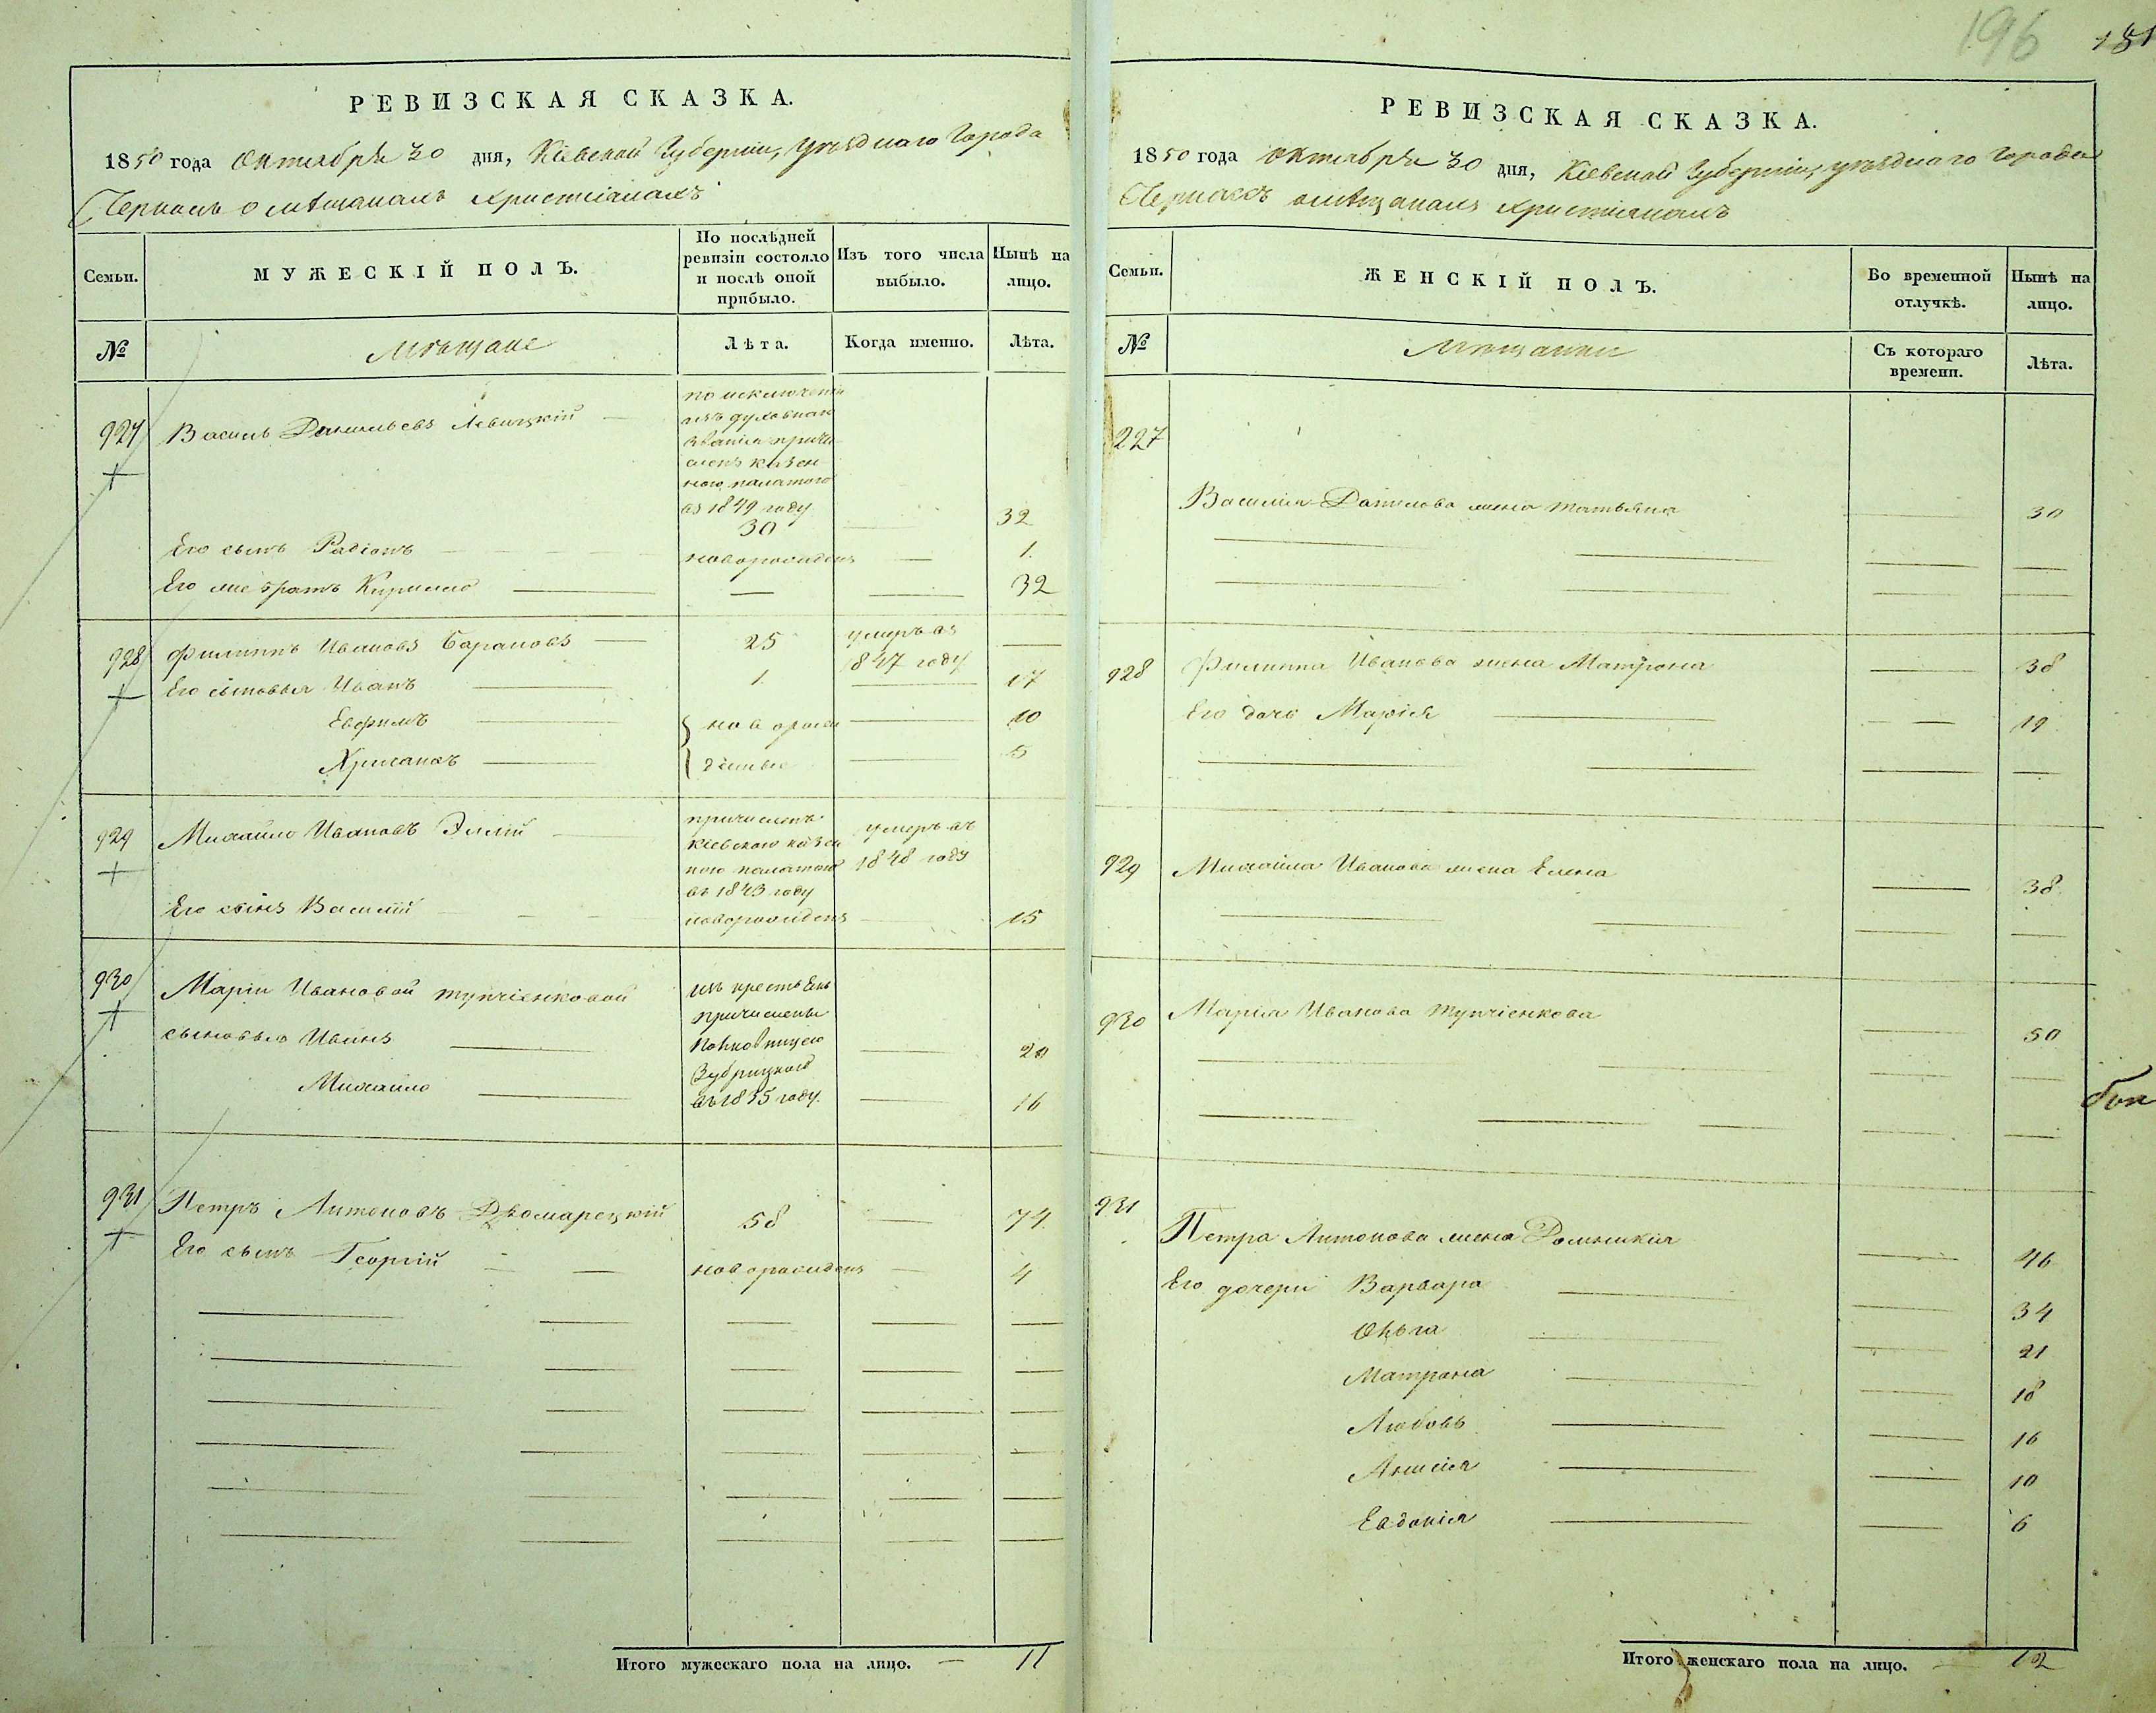 196 181
РЕВИЗСКАЯ СКАЗКА.
1850 года Октября 30 дня, Кіевской Губерніи, уѣзднаго Города
Черкасъ о мѣщанахъ христіанахъ
Семьи.
МУЖЕСКІЙ ПОЛЪ.
По послѣдней ревизіи состояло и послѣ оной прибыло.
Изъ того числа выбыло.
Нынѣ на лицо.
№
Мѣщане
Лѣта.
Когда именно.
Лѣта.
927 Василь Данильевъ Левицкій
по исключеніи
изъ духовнаго
званія причи
сленъ казен
ною палатою
въ 1849 году
30 32
Его сынъ Радіонъ новорожденъ 1.
Его же братъ Кирилло 32
928 Филиппъ Ивановъ Барановъ 25 умеръ въ
1847 году
Его сыновья Иванъ 1. 17
Евфимъ новорож 10
Хрисанфъ денные 5
929 Михайло Ивановъ причисленъ умеръ въ
Кіевскою казен 1848 году
ною палатою
въ 1843 году
Его сынъ Василій новорожденъ 15
930 Маріи Ивановой Тупчіенковой изъ крестьянъ
причислены
сыновья Иванъ 20
Зубрицкого
Михайло въ 1835 году. 16
931 Петръ Антоновъ Домарецкій 58 74
Его сынъ Георгій новорожденъ 4
Итого мужескаго пола на лицо. — 11
РЕВИЗСКАЯ СКАЗКА.
1850 года Октября 30 дня, Кіевской Губерніи, уѣзднаго Города
Черкасъ о мѣщанахъ христіанахъ
Семьи.
ЖЕНСКІЙ ПОЛЪ.
Во временной отлучкѣ.
Нынѣ на лицо.
№
Мѣщанки
Съ котораго времени.
Лѣта.
227
Василія Данилова жена Татьяна 30
928 Филиппа Иванова жена Матрона 38
Его дочь Марія 19
929 Михайла Иванова жена Елена 38
930 Марія Иванова Тупчіенкова 50
931
Петра Антонова жена Домникія 46
Его дочери Варвара 34
Ольга 21
Матрона 18
Любовь 16
Анисія 10
Евдокія 6
Итого женскаго пола на лицо. — 12